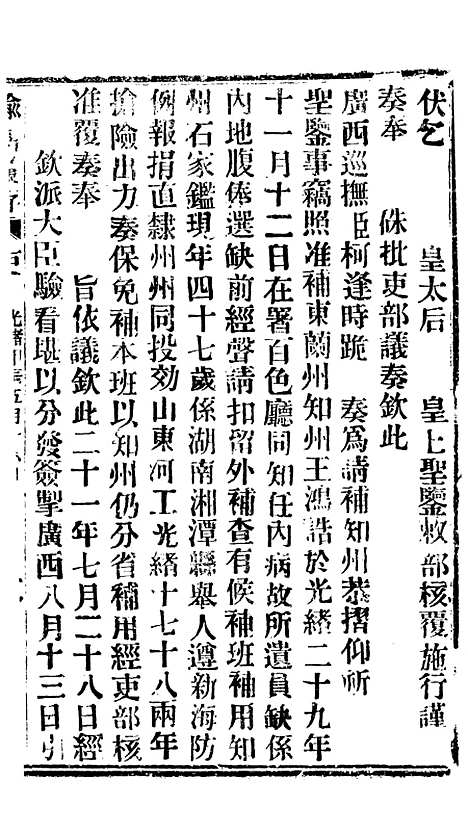 伏乞 皇太后 皇上聖鑒敕部核覆施行謹
奏奉 硃批吏部議奏欽此
廣西巡撫臣柯逢時跪 奏為請補知州恭摺仰祈
聖鑒事竊照准補東蘭州知州王鴻誥於光緒二十九年
十一月十二日在署百色廳同知任內病故所遺員缺係
內地腹俸選缺前經聲請扣留外補查有候補班補用知
州石家鑑現年四十七歲係湖南湘潭縣舉人遵新海防
例報捐直隸州州同投効山東河工光緒十七十八兩年
搶險出力奏保免補本班以知州仍分省補用經吏部核
准覆奏奉 旨依議欽此二十一年七月二十八日經
欽派大臣驗看堪以分發簽掣廣西八月十三日引